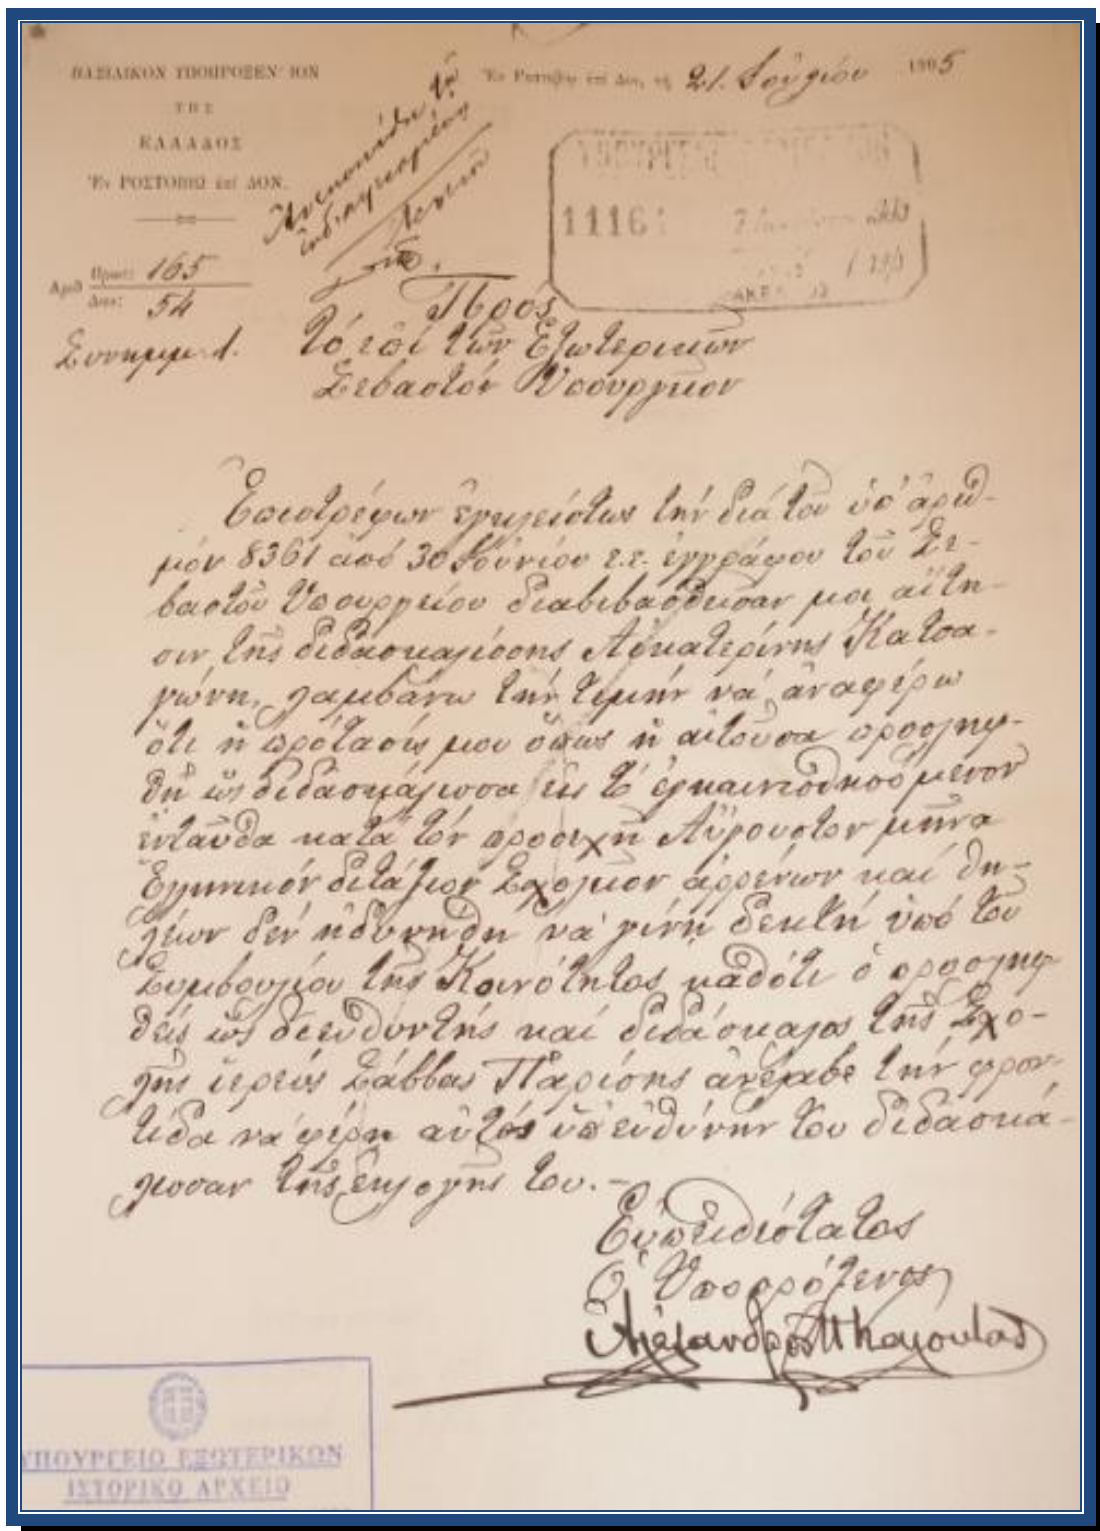 ΒΑΣΙΛΙΚΟΝ ΥΠΟΠΡΟΞΕΝΕΙΟΝ
ΤΗΣ
ΕΛΛΑΔΟΣ
Ἐν ΡΟΣΤΟΒΙΩ ἐπὶ ΔΟΝ.
Ἐν Ροστοβίῳ ἐπὶ Δον, τῇ 21. Ἰουλίου 1905
Ἀριθ Πρωτ: 165
Διεκ: 54
Συνημμ. 1.
1116
Πρὸς
τὸ ἐπὶ τῶν Ἐξωτερικῶν
Σεβαστὸν Ὑπουργεῖον
Ἐπιστρέφων ἐγκλείστως τὴν διὰ τοῦ ὑπ' ἀριθ-
μὸν 8361 ἀπὸ 30 Ἰουνίου ἐ.ἔ. ἐγγράφου τοῦ Σε-
βαστοῦ Ὑπουργείου διαβιβασθεῖσαν μοι αἴτη-
σιν τῆς διδασκαλίσσης Αἰκατερίνης Κατσα-
γώνη, λαμβάνω τὴν τιμὴν νὰ ἀναφέρω
ὅτι ἡ πρότασίς μου ὅπως ἡ αἰτοῦσα προσληφ-
θῇ ὡς διδασκάλισσα εἰς τὸ ἐγκαινισθησόμενον
ἐνταῦθα κατὰ τὸν προσεχῆ Αὔγουστον μῆνα
Ἑλληνικὸν διτάξιον Σχολεῖον ἀρρένων καὶ θη-
λέων δὲν ἠδυνήθη νὰ γίνῃ δεκτὴ ὑπὸ τοῦ
Συμβουλίου τῆς Κοινότητος καθότι ὁ προσληφ-
θεὶς ὡς διευθυντὴς καὶ διδάσκαλος τῆς Σχο-
λῆς ἱερεὺς Σάββας Παρίσης ἀνέλαβε τὴν φρον-
τίδα νὰ φέρῃ αὐτὸς ὑπ' εὐθύνην του διδασκά-
λισσαν τῆς ἐκλογῆς του. -
Εὐπειθέστατος
Ὁ Ὑποπρόξενος
Ἀλέξανδρος
ΥΠΟΥΡΓΕΙΟ ΕΞΩΤΕΡΙΚΩΝ
ΙΣΤΟΡΙΚΟ ΑΡΧΕΙΟ